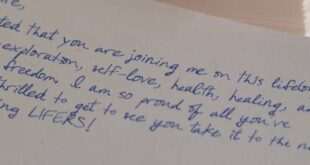 re,
ted that you are joining me on this lifelo
exploration, self-love, health, healing, a
freedom. I am so proud of all you've
thrilled to get to see you take it to the n
ing LIFERS!